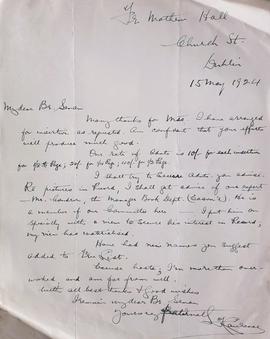 Fr Mathew Hall
Church St.
Dublin
15 May 1924
My dear Br. Senan
Many thanks for MSS. I have arranged
for insertion as requested. Am confident that your efforts
will produce much good.
Our rate of Advts is 10/- for each insertion
for 1/8 th Page; 20/- for 1/4 Page; 40/- for 1/2 Page
I shall try to secure Advts. you advise.
Re pictures in Record, I shall get advice of our expert
the Manager Book Dept (Eason's). He is
a member of our Committee here — I put him on
specially with a view to secure his interest in Record;
my view has materialised.
Have had new names you suggest
added to Free List.
Excuse haste; I'm more than over-
worked and am far from well.
With all best thanks & good wishes
I remain my dear Br. Senan
Yours very fraternally